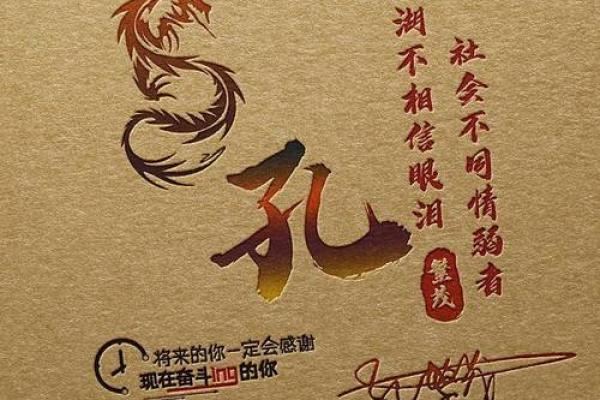 社会不同情弱者
湖不相信眼泪
孔
繁茂
将来的你一定会感谢
现在奋斗ing的你